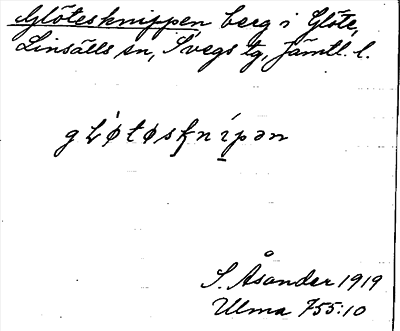 Glötesknippen berg i Glöte,
Linsälls sn, Svegs tg, Jämtl. l.
gLøtøsknípən
S. Åsander 1919
Ulma 755:10